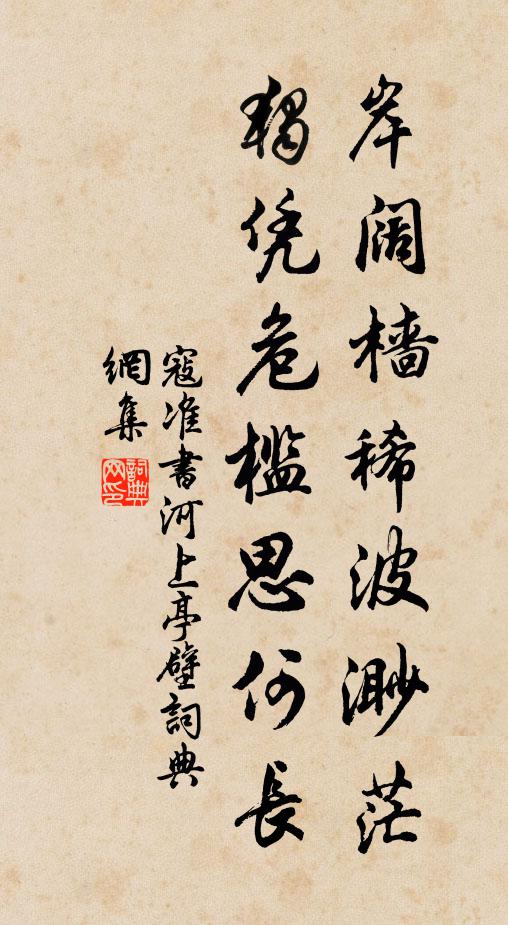 岸阔檣稀波渺茫
獨凭危檻思何長
寇准書河上亭壁詞典
網集
詞典
网印